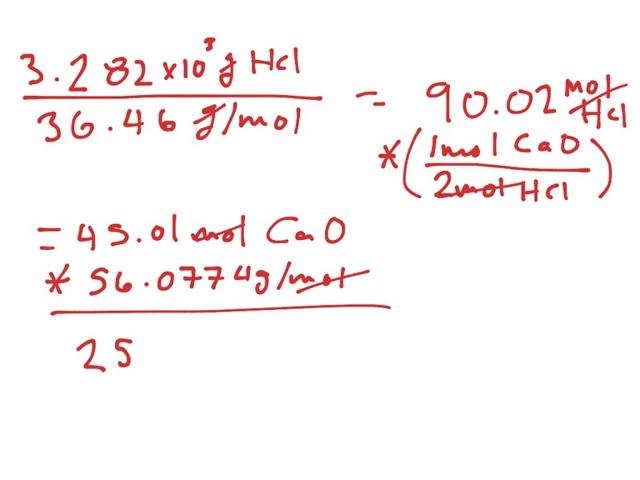 3.282 x10³ g HCl
36.46 g/mol
= 90.02 mol HCl
* (1mol CaO
2mol HCl)
= 45.01 mol CaO
* 56.0774g/mol
25